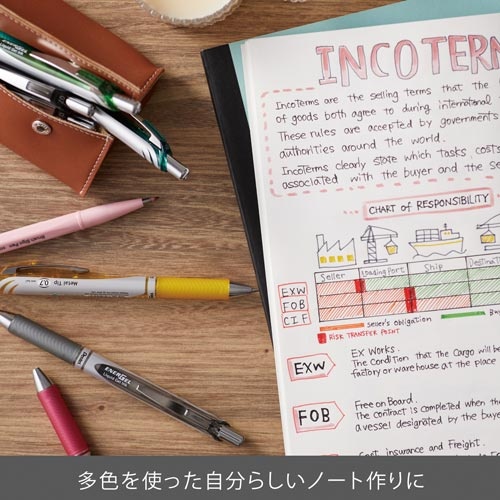 INCOTERM
Incoterms are the selling terms that the
of goods both agree to during international
These rules are accepted by governments
authorities around the world.
Incoterms clearly state which tasks, costs
associated with the buyer and the S
CHART of RESPONSIBILITY
Seller Loading Port Ship Destinat
EXW
FOB
CIF
Seller's obligation Bu
RISK TRANSFER POINT
EXW
EX Works.
The Condition that the Cargo will be
factory or warehouse at the place
FOB
Free on Board.
The contract is completed when the
a vessel designated by the buyer
Cost, insurance and Freight.
Brush Sign Pen
Metal Tip 0.7
Pentel ENERGEL
Liquid Gel Ink
多色を使った自分らしいノート作りに